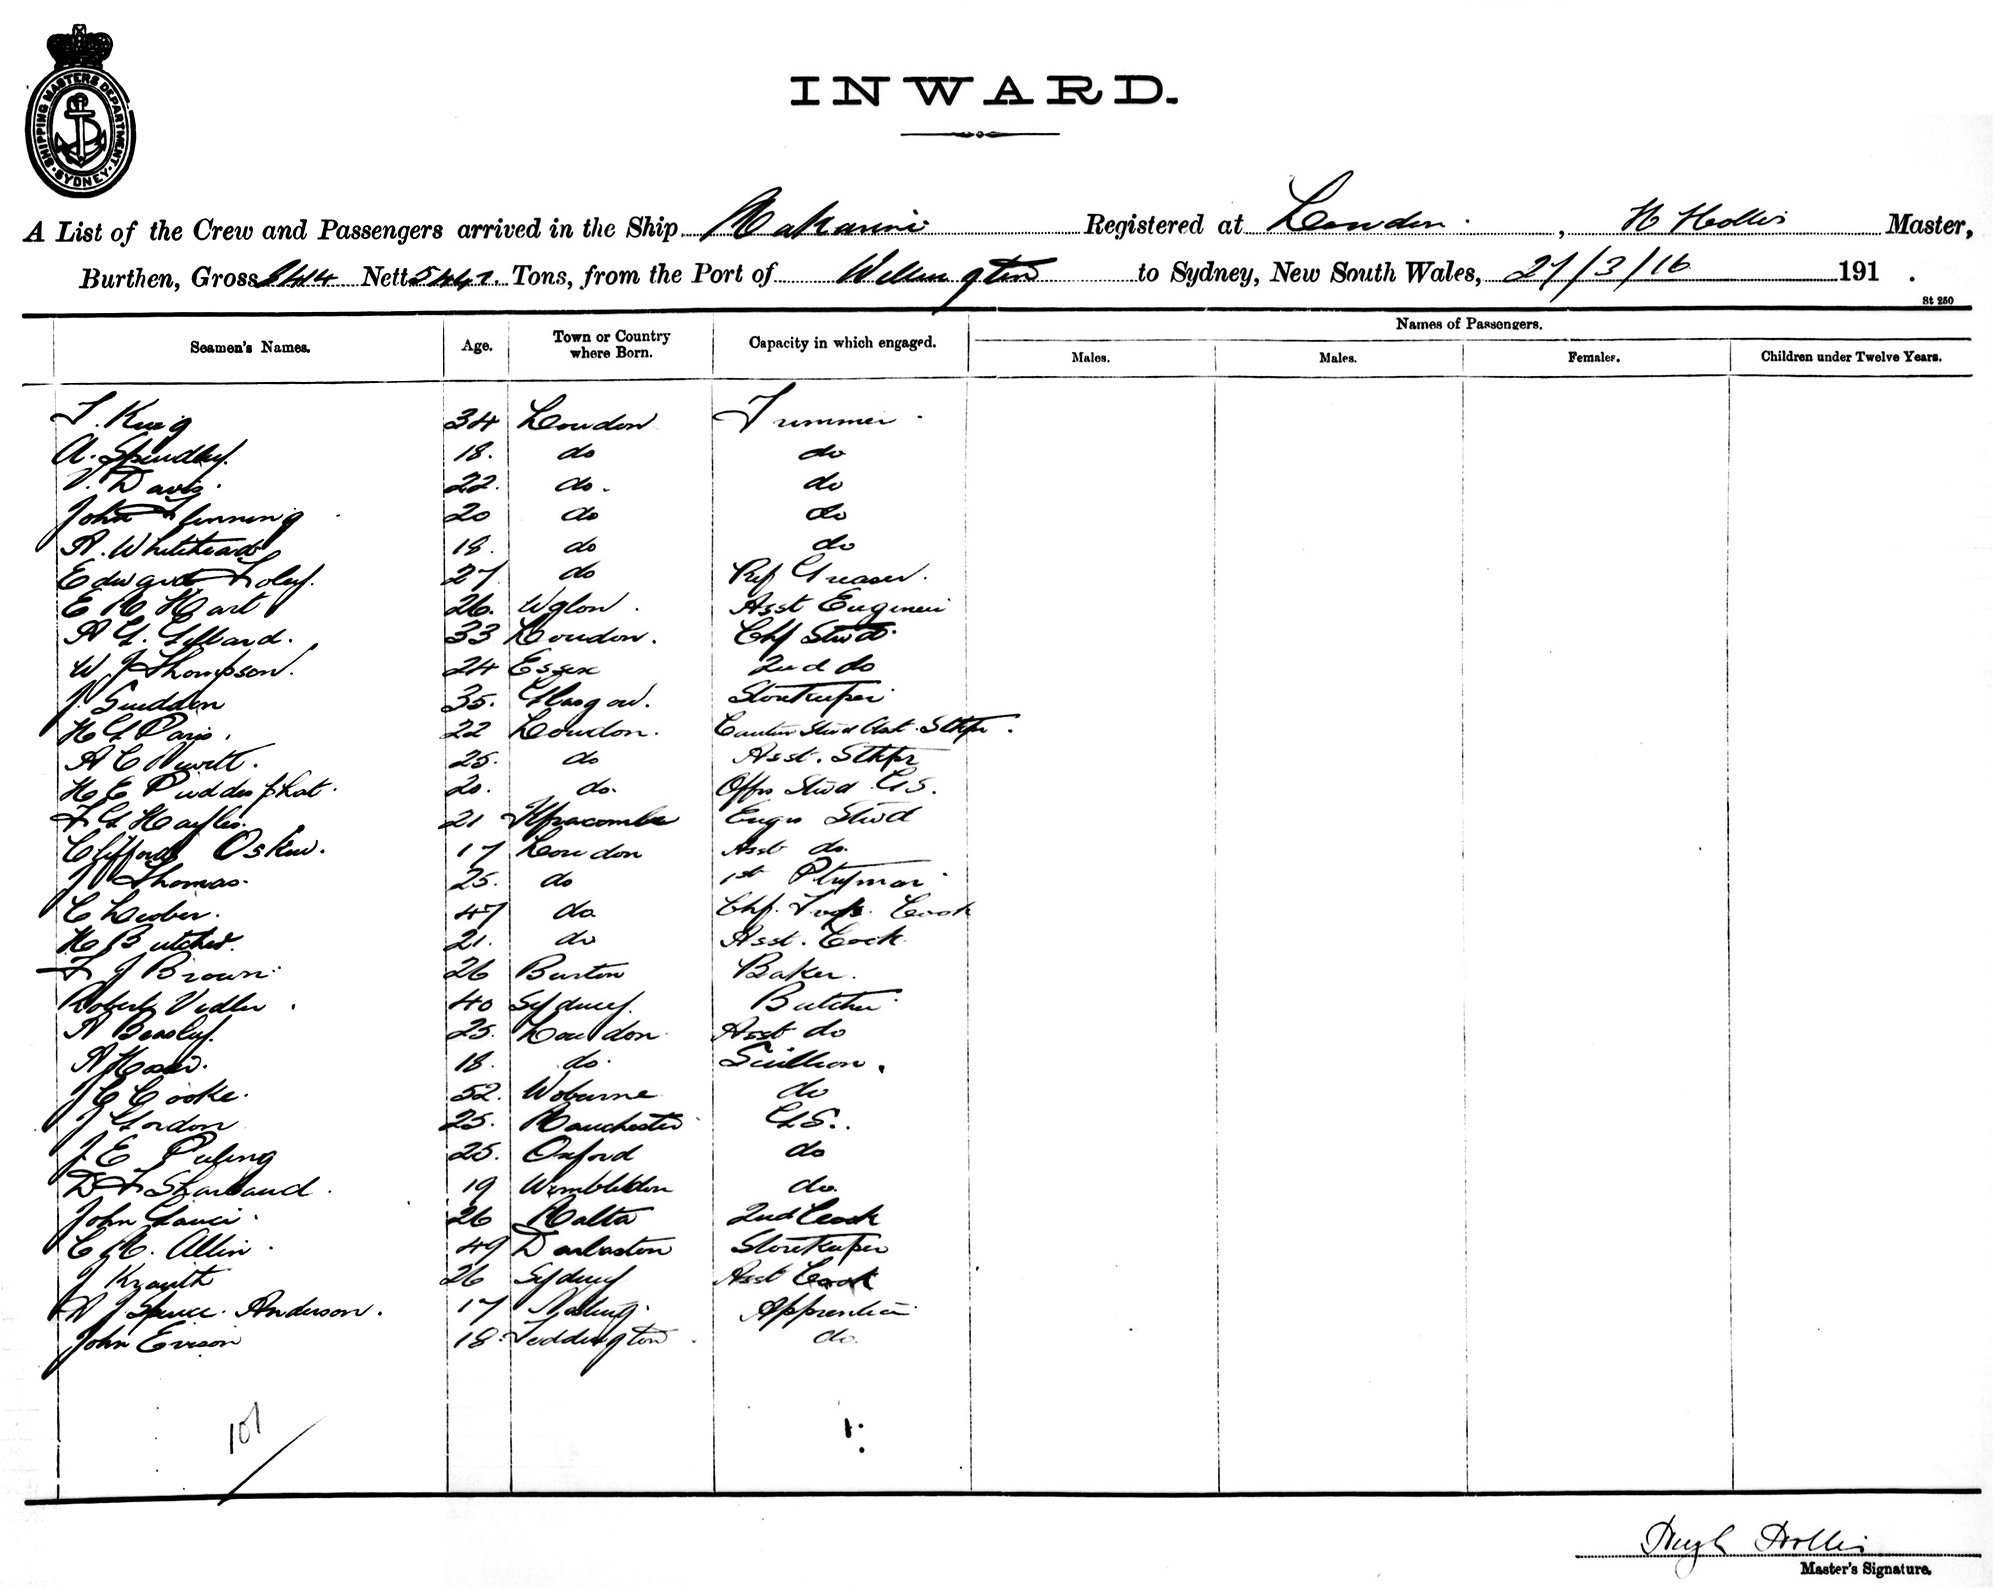 SHIPPING MASTERS DEPARTMENT
SYDNEY
INWARD.
A List of the Crew and Passengers arrived in the Ship Makarini Registered at London, H Hollis Master,
Burthen, Gross 8414 Nett Tons, from the Port of Wellington to Sydney, New South Wales, 27/3/16 191 .
St 250
Seamen's Names. Age. Town or Country where Born. Capacity in which engaged. Names of Passengers.
Males. Males. Females. Children under Twelve Years.
T. King 34 London Trimmer
A. Spindley. 18. do do
V. Davis. 22. do. do
John Flenning 20 do do
A. Whitehead 18. do do
Edward Foley. 27 do Ref Greaser.
E R Hart 26. Wglon. Asst Engineer
A G. 33 London. Chf Stwd.
W J Thompson. 24 Essex 2nd do
J. Snedden 35. Glasgow. Storekeeper
H G Paris. 22 London. Canteen Stwd Asst. Stkpr.
A C Newitt. 25. do Asst. Stkpr
H E Puddephat. 20. do. Offrs Stwd G.S.
F G Hayles. 21 Ilfracombe Engrs Stwd
Clifford Oskew. 17 London Asst do.
J Thomas. 25. do 1st Ptryman
C 47 do. Chf. Trps. Cook
H Butcher. 21. do Asst. Cook.
F J Brown. 26 Burton Baker.
Robert Vedler. 40 Sydney. Butcher
A Beasley. 25. London. Asst do
A 18. do. Scullion.
J C Cooke. 52. Woburne do
J Gordon 25. Manchester G.S..
J. E Puling 25. Oxford do
D F Sharland. 19 Wimbledon do.
John Gauci. 26 Malta 2nd Cook
C R. Allin. 49 Darlaston Storekeeper
J Knauth 26 Sydney Asst Cook
J Spence. Anderson. 17 Apprentice
John Evison 18. Teddington. do.
107
Hugh Hollis
Master's Signature.